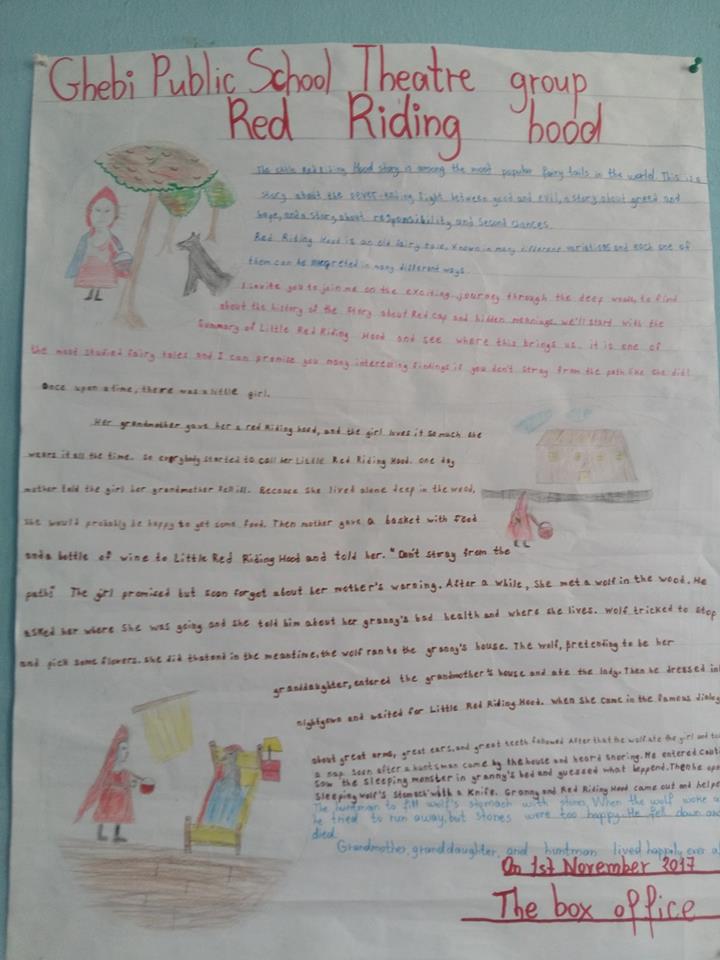 Ghebi Public School Theatre group
Red Riding hood
The Little Red Riding Hood story is among the most popular fairy tails in the world. This is a
story about the never-ending fight between good and evil, a story about greed and
hope, and a story about responsibility and second chances.
Red Riding Hood is an old fairy tale, known in many different variations and each one of
them can be in different ways.
I invite you to join me on the exciting journey through the deep woods, to find
about the history of the story about Red Cap and hidden meanings. we'll start with the
Summary of Little Red Riding Hood and see where this brings us. it is one of
the most studied fairy tales and I can promise you many interesting findings if you don't stray from the path like she did!
Once upon a time, there was a little girl.
Her grandmother gave her a red Riding hood, and the girl loves it so much she
wears it all the time. So everybody started to call her Little Red Riding Hood. one day
mother told the girl her grandmother fell ill. Because she lived alone deep in the wood,
she would probably be happy to get some food. Then mother gave a basket with food
and a bottle of wine to Little Red Riding Hood and told her. "Don't stray from the
path!" The girl promised but soon forgot about her mother's warning. After a while, She met a wolf in the wood. He
asked her where She was going and she told him about her granny's bad health and where she lives. Wolf tricked to stop
and pick some flowers. she did that and in the meantime, the wolf ran to the granny's house. The wolf, Pretending to be her
granddaughter, entered the grandmother's house and ate the lady. Then he dressed in
nightgown and waited for Little Red Riding Hood. When she came in the famous dialog
about great arms, great ears, and great teeth followed After that the wolf ate the girl and
a nap. Soon after a huntsman came by the house and heard snoring. He entered
Saw the Sleeping monster in granny's bed and guessed what happend. Then he
Sleeping wolf's Stomach with a Knife. Granny and Red Riding Hood came out and helpe
The huntman to fill wolf's stomach with stones. When the wolf woke
he tried to run away, but stones were too happy. He fell down and
died.
Grandmother, granddaughter, and huntman lived happily ever a
On 1st November 2017
The box office